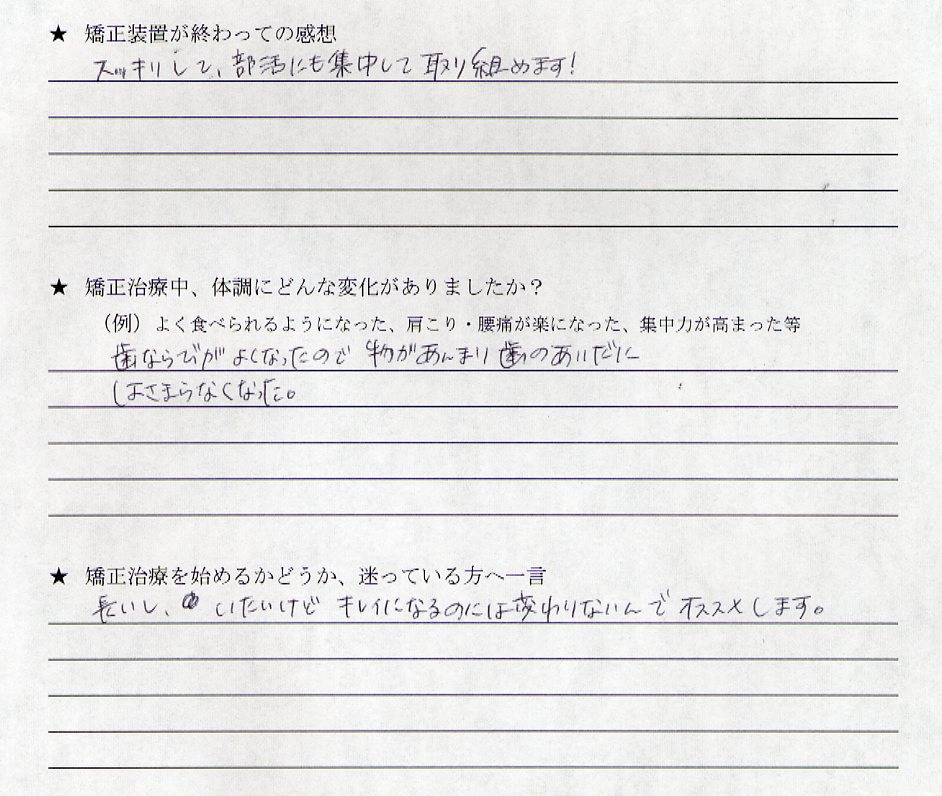 ★ 矯正装置が終わっての感想
スッキリして、部活にも集中して取り組めます!
★ 矯正治療中、体調にどんな変化がありましたか?
（例）よく食べられるようになった、肩こり・腰痛が楽になった、集中力が高まった等
歯ならびがよくなったので物があんまり歯のあいだに
はさまらなくなった。
★ 矯正治療を始めるかどうか、迷っている方へ一言
長いし、いたいけどキレイになるのには変わりないんでオススメします。